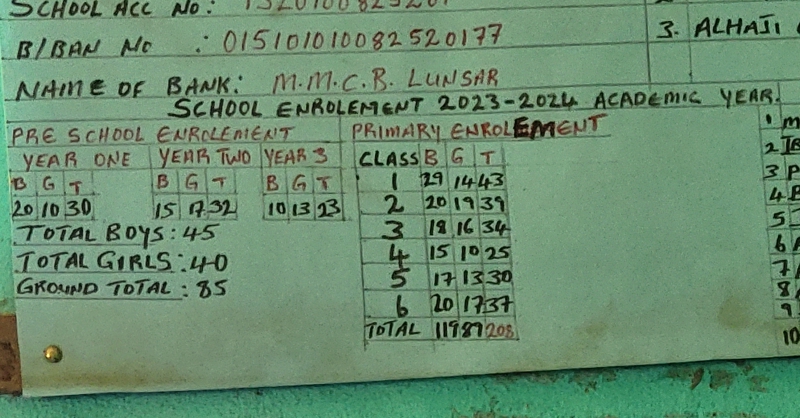 SCHOOL ACC NO:
B/BAN NO : 01510101008252 0177
3. ALHAJI
NAME OF BANK: M.M.C.B. LUNSAR
SCHOOL ENROLEMENT 2023-2024 ACADEMIC YEAR.
PRE SCHOOL ENROLEMENT
YEAR ONE YEAR TWO YEAR 3
B G T B G T B G T
20 10 30 15 17 32 10 13 23
TOTAL BOYS: 45
TOTAL GIRLS: 40
GROUND TOTAL: 85
PRIMARY ENROLEMENT
CLASS B G T
1 29 14 43
2 20 19 39
3 18 16 34
4 15 10 25
5 17 13 30
6 20 17 37
TOTAL 119 89 208
1 M
2 IB
3 P
4
5
6
7
8
9
10